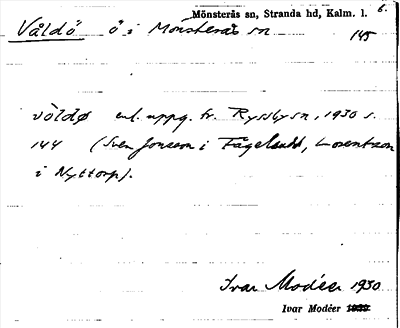 Mönsterås sn, Stranda hd, Kalm. l. 6.
Våldö ö i Mönsterås sn
145
vòldø enl. uppg. fr. Ryssbysn, 1930 s.
144 (Sven Jonsson i Fågelsudd, Lorentzon
i Nyttorp).
Ivar Modéer 1930
Ivar Modéer 1933